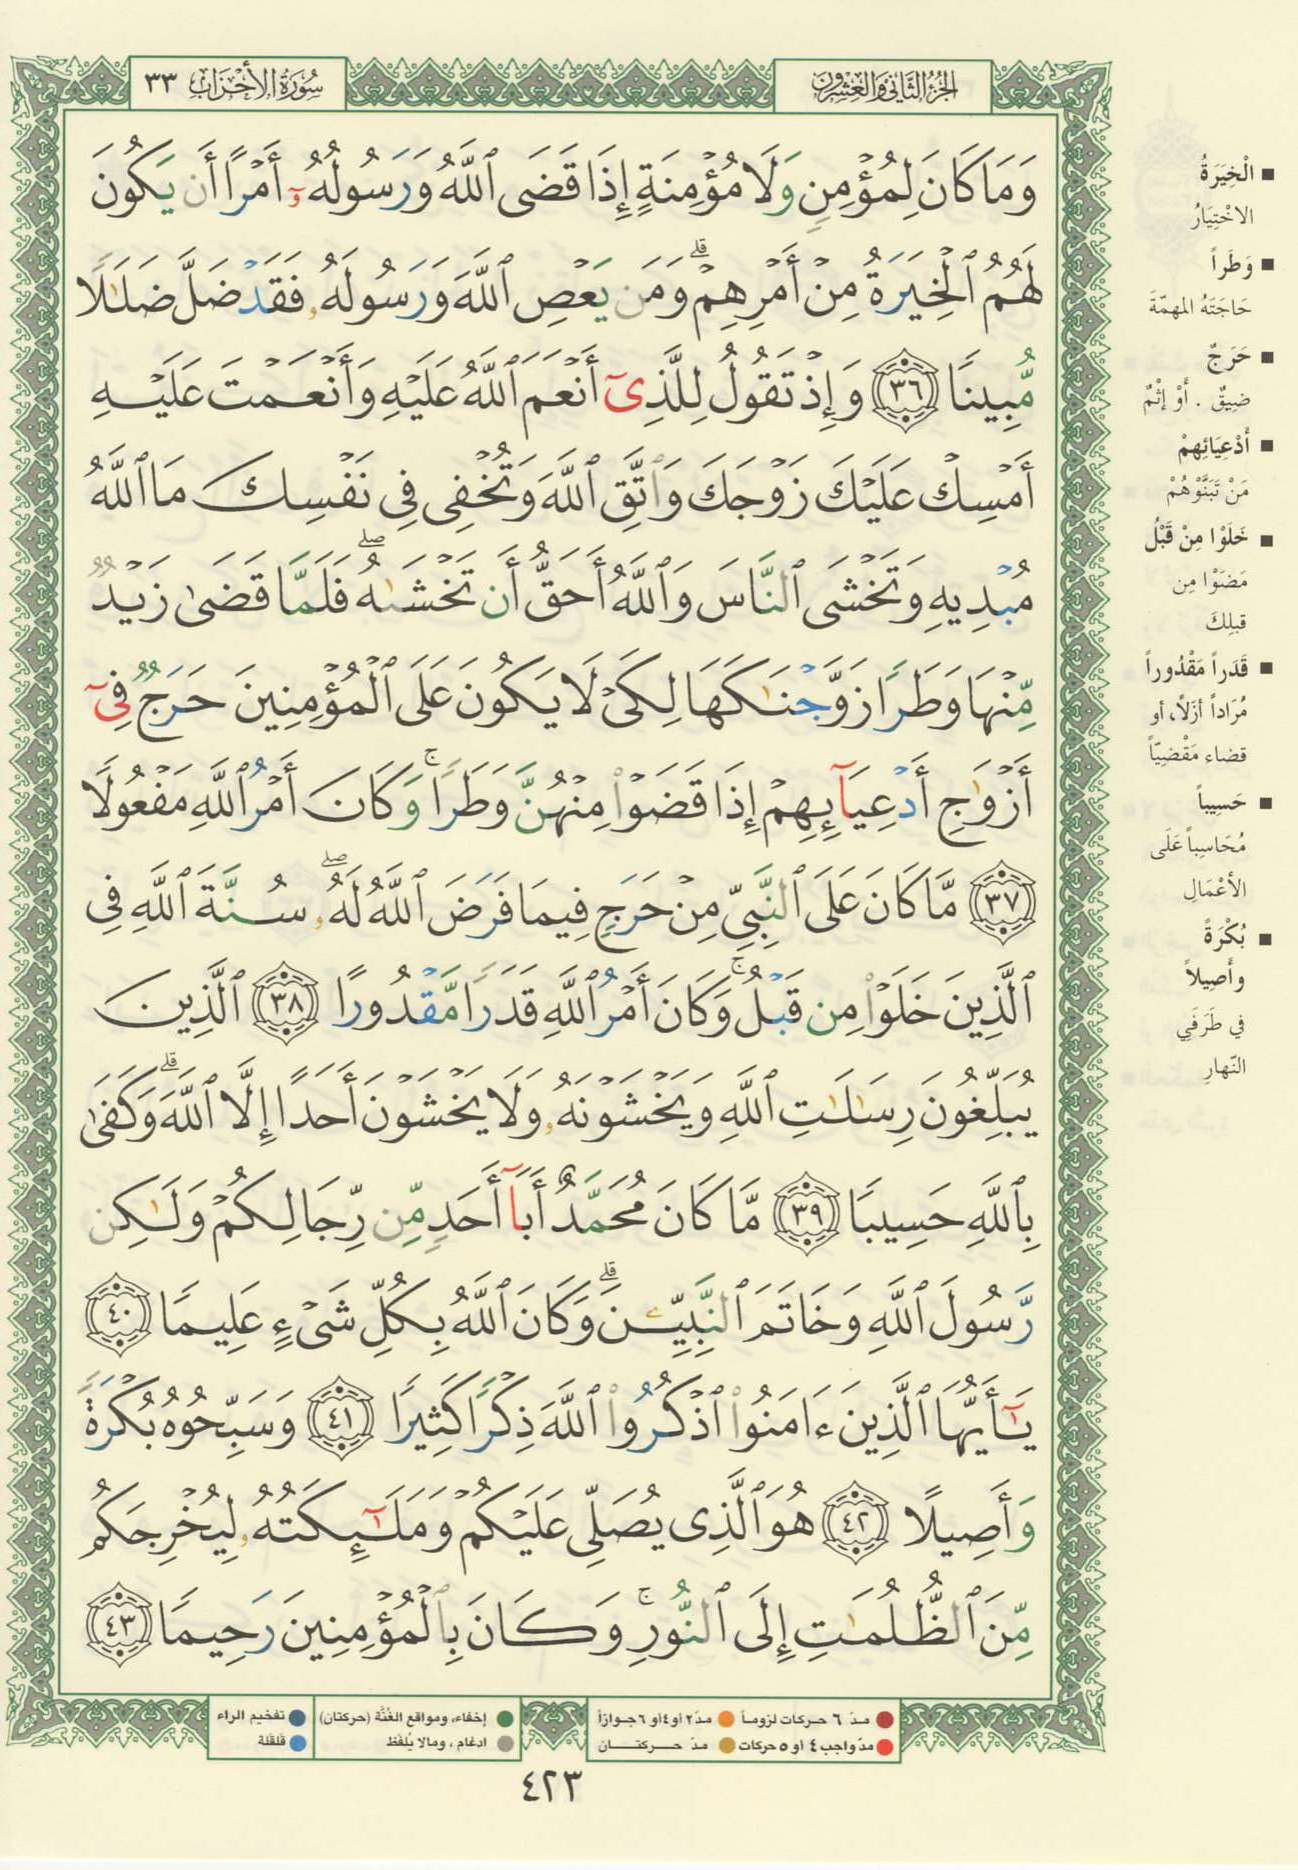 الجزء الثاني والعشرون
سورة الأحزاب ٣٣
وَمَا كَانَ لِمُؤْمِنٍ وَلَا مُؤْمِنَةٍ إِذَا قَضَى ٱللَّهُ وَرَسُولُهُۥٓ أَمْرًا أَن يَكُونَ
لَهُمُ ٱلْخِيَرَةُ مِنْ أَمْرِهِمْ ۗ وَمَن يَعْصِ ٱللَّهَ وَرَسُولَهُۥ فَقَدْ ضَلَّ ضَلَـٰلًا
مُّبِينًا ٣٦ وَإِذْ تَقُولُ لِلَّذِىٓ أَنْعَمَ ٱللَّهُ عَلَيْهِ وَأَنْعَمْتَ عَلَيْهِ
أَمْسِكْ عَلَيْكَ زَوْجَكَ وَٱتَّقِ ٱللَّهَ وَتُخْفِى فِى نَفْسِكَ مَا ٱللَّهُ
مُبْدِيهِ وَتَخْشَى ٱلنَّاسَ وَٱللَّهُ أَحَقُّ أَن تَخْشَىٰهُ ۖ فَلَمَّا قَضَىٰ زَيْدٌ
مِّنْهَا وَطَرًا زَوَّجْنَـٰكَهَا لِكَىْ لَا يَكُونَ عَلَى ٱلْمُؤْمِنِينَ حَرَجٌ فِىٓ
أَزْوَٰجِ أَدْعِيَآئِهِمْ إِذَا قَضَوْا۟ مِنْهُنَّ وَطَرًا ۚ وَكَانَ أَمْرُ ٱللَّهِ مَفْعُولًا
٣٧ مَّا كَانَ عَلَى ٱلنَّبِىِّ مِنْ حَرَجٍ فِيمَا فَرَضَ ٱللَّهُ لَهُۥ ۖ سُنَّةَ ٱللَّهِ فِى
ٱلَّذِينَ خَلَوْا۟ مِن قَبْلُ ۚ وَكَانَ أَمْرُ ٱللَّهِ قَدَرًا مَّقْدُورًا ٣٨ ٱلَّذِينَ
يُبَلِّغُونَ رِسَـٰلَـٰتِ ٱللَّهِ وَيَخْشَوْنَهُۥ وَلَا يَخْشَوْنَ أَحَدًا إِلَّا ٱللَّهَ ۗ وَكَفَىٰ
بِٱللَّهِ حَسِيبًا ٣٩ مَّا كَانَ مُحَمَّدٌ أَبَآ أَحَدٍ مِّن رِّجَالِكُمْ وَلَـٰكِن
رَّسُولَ ٱللَّهِ وَخَاتَمَ ٱلنَّبِيِّـۧنَ ۗ وَكَانَ ٱللَّهُ بِكُلِّ شَىْءٍ عَلِيمًا ٤٠
يَـٰٓأَيُّهَا ٱلَّذِينَ ءَامَنُوا۟ ٱذْكُرُوا۟ ٱللَّهَ ذِكْرًا كَثِيرًا ٤١ وَسَبِّحُوهُ بُكْرَةً
وَأَصِيلًا ٤٢ هُوَ ٱلَّذِى يُصَلِّى عَلَيْكُمْ وَمَلَـٰٓئِكَتُهُۥ لِيُخْرِجَكُم
مِّنَ ٱلظُّلُمَـٰتِ إِلَى ٱلنُّورِ ۚ وَكَانَ بِٱلْمُؤْمِنِينَ رَحِيمًا ٤٣
■ الْخِيَرَةُ
الاخْتِيَارُ
■ وَطَراً
حَاجَتَهُ المهمّةَ
■ حَرَجٌ
ضِيقٌ . أَوْ إِثْمٌ
■ أَدْعِيَائِهِمْ
مَنْ تَبَنَّوْهُمْ
■ خَلَوْا مِنْ قَبْلُ
مَضَوْا مِن
قبلِكَ
■ قَدَراً مَقْدُوراً
مُرَاداً أزَلاً، أو
قضاء مَقْضِيّاً
■ حَسِيباً
مُحَاسِباً عَلَى
الأعْمَالِ
■ بُكْرَةً
وأَصِيلاً
في طَرَفَي
النّهارِ
مدّ ٦ حركات لزوماً
مدّ٢ أو٤ أو ٦ جوازاً
إخفاء، ومواقع الغُنَّة (حركتان)
تفخيم الراء
مدّ واجب ٤ أو ٥ حركات
مدّ حركتان
ادغام ، ومالا يُلفَظ
قلقلة
٤٢٣